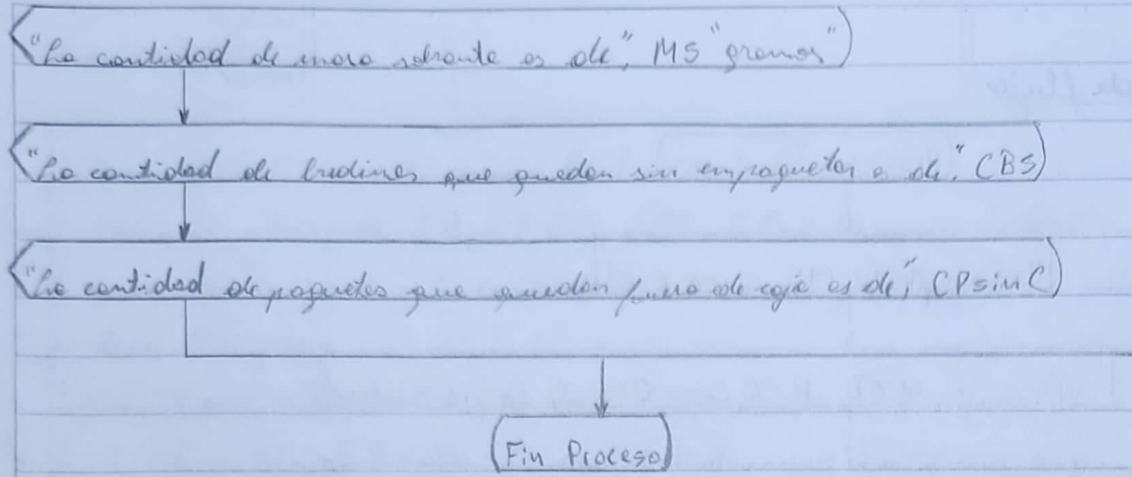 "La cantidad de masa sobrante es de", MS "gramos"
"La cantidad de budines que quedan sin empaquetar es de", CBS
"La cantidad de paquetes que quedan fuera de caja es de", CPsinC
Fin Proceso